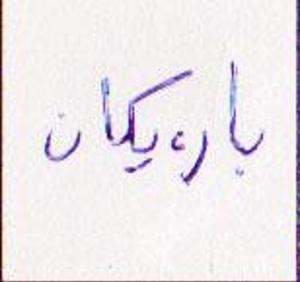 باریکان